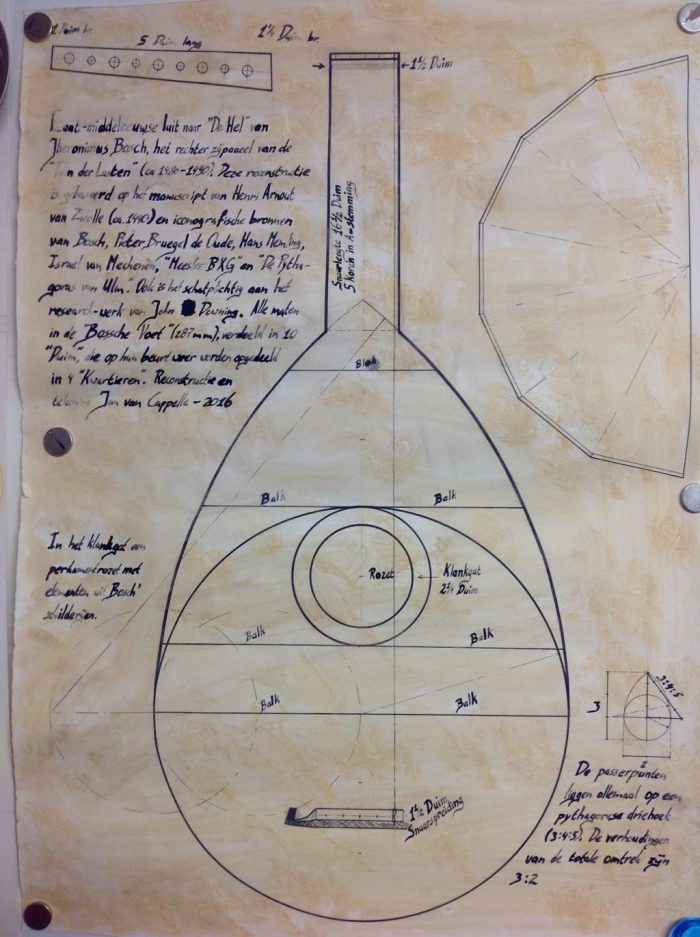 1 Duim br.
5 Duim lang
1¼ Duim br.
1½ Duim
Laat-middeleeuwse luit naar "De Hel" van
Jheronimus Bosch, het rechter zijpaneel van de
"Tuin der Lusten" (ca 1480-1490). Deze reconstructie
is gebaseerd op het manuscript van Henri Arnout
van Zwolle (ca. 1450) en iconografische bronnen
van Bosch, Pieter Bruegel de Oude, Hans Memling,
Israel van Mechenen, "Meester BXG" en "De Pytha-
goras van Ulm". Ook is het schatplichtig aan het
research-werk van John Downing. Alle maten
in de "Bossche Voet" (287mm), verdeeld in 10
"Duim", die op hun beurt weer worden opgedeeld
in 4 "Kwartieren". Reconstructie en
tekening Jan van Cappelle - 2016
Snaarlengte 16½ Duim
5 koren in A-stemming
Blok
Balk
Balk
In het klankgat een
perkamentrozet met
elementen uit Bosch'
schilderijen.
Rozet
Klankgat
2¼ Duim
Balk
Balk
Balk
Balk
1½ Duim
Snaarspreiding
3:4:5
3
2
De passerpunten
liggen allemaal op een
pythagorese driehoek
(3:4:5). De verhoudingen
van de totale omtrek zijn
3:2